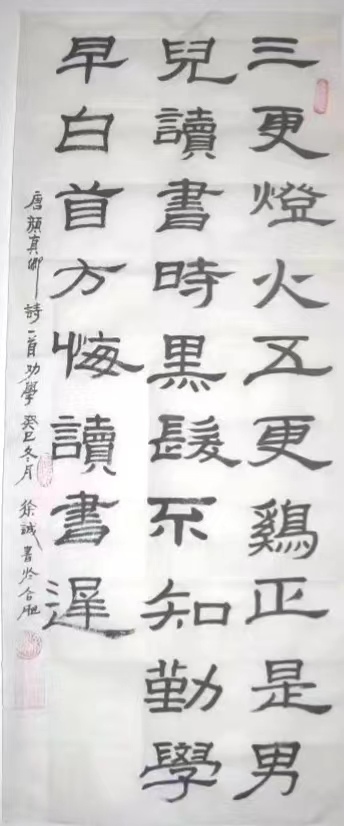 三更燈火五更鷄正是男
兒讀書時黑髮不知勤學
早白首方悔讀書遲
唐顏真卿詩一首勸學癸巳冬月徐誠書於合肥